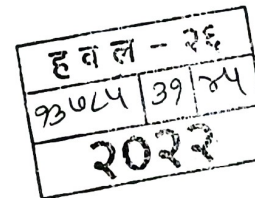 हवल - २६
१३७८५ | ३१ | ४५
२०२२